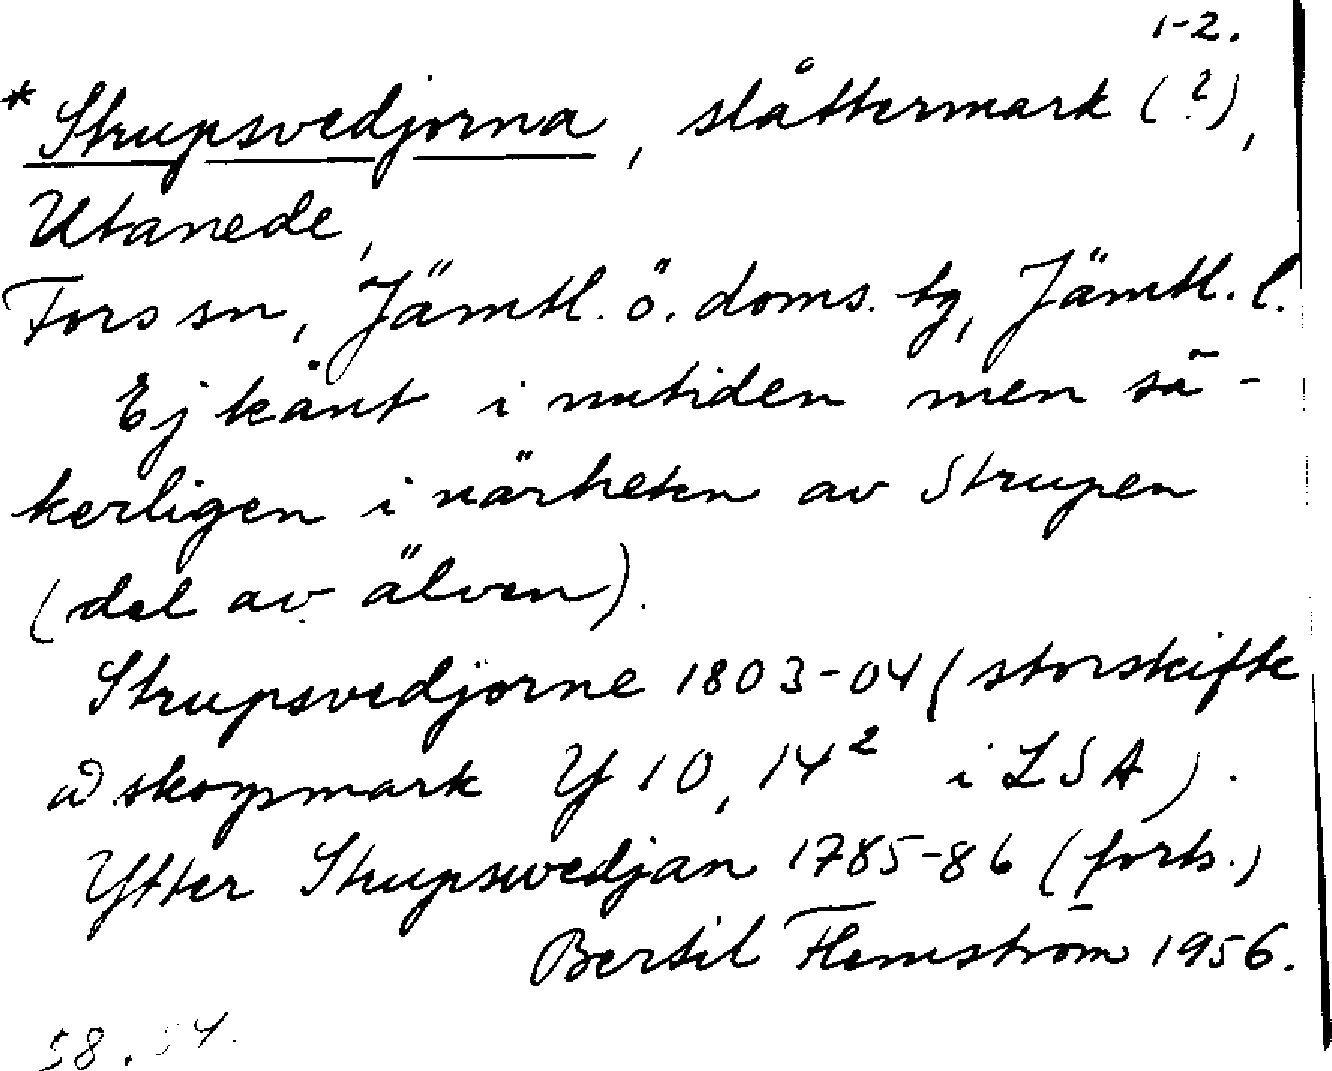 1-2.
* Strupsvedjorna, slåttermark (?),
Utanede,
Fors sn, Jämtl. ö. doms. tg, Jämtl. l.
Ej känt i nutiden men sä-
kerligen i närheten av Strupen
(del av älven).
Strupsvedjorne 1803-04 (storskifte
å skogsmark Y 10, 14² i LSA).
Yfter Strupswedjan 1785-86 (forts.)
Bertil Flemström 1956.
58.54.